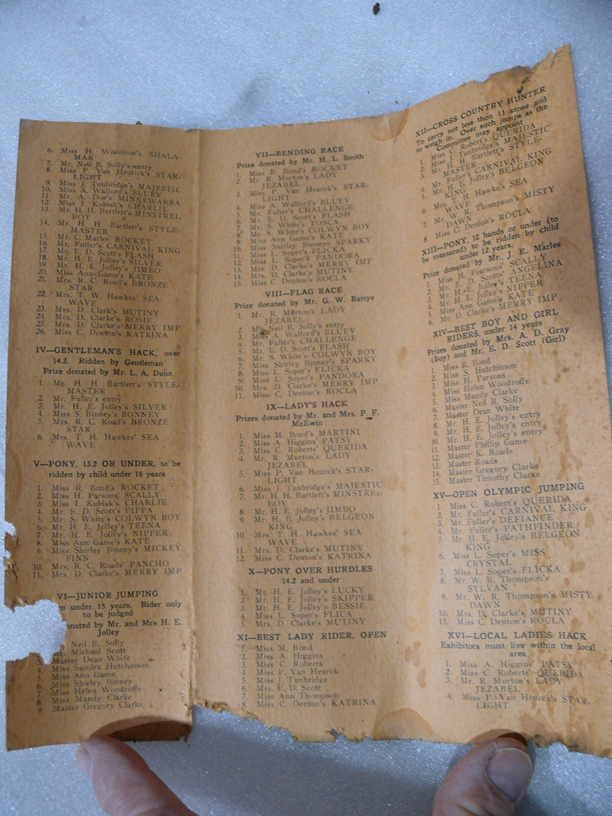 6. Miss H. Woodrow's SHALA-
MAR
7. Mr. Neil B. Solly's entry
8. Miss P. Van Heurck's STAR-
LIGHT
9. Miss J. Tunbridge's MAJESTIC
10. Miss A. Walford's BLUEY
11. Mr. A. Doe's MINNEWARRA
12. Miss J. Kubiak's CHARLIE
13. Mr. H. H. Bartlett's MINSTREL
BOY
14. Mr. H. H. Bartlett's STYLE-
MASTER
15. Mr. C. Marles' ROCKET
16. Mr. Fuller's CARNIVAL KING
17. Mr. E. D. Scott's FLASH
18. Mr. H. E. Jolley's SILVER
19. Mr. H. E. Jolley's JIMBO
20. Miss Ann Game's KATE
21. Mrs. R. C. Road's BRONZE
STAR
22. Mrs. T. W. Hawkes' SEA
WAVE
23. Mrs. D. Clark's MUTINY
24. Mrs. D. Clarke's ROSIE
25. Mrs. D. Clarke's MERRY IMP
26. Miss C. Denton's KATRINA
IV—GENTLEMAN'S HACK, over
14.2. Ridden by Gentleman
Prize donated by Mr. L. A. Dunn
1. Mr. H. H. Bartlett's STYLE-
MASTER
2. Mr. Fuller's entry
3. Mr. H. E. Jolley's SILVER
4. Miss S. Binney's BONNEY
5. Mrs. R. C. Road's BRONZE
STAR
6. Mrs. T. H. Hawkes' SEA
WAVE
V—PONY, 13.2 OR UNDER, to be
ridden by child under 16 years
1. Miss R. Bond's ROCKET
2. Miss H. Parsons' SCALLY
3. Miss J. Kubiak's CHARLIE
4. Mr. E. D. Scott's PIPPA
5. Mr. S. White's COLWYN BOY
6. Mr. H. E. Jolley's TEENA
7. Mr. H. E. Jolley's NIPPER
8. Miss Ann Game's KATE
9. Miss Shirley Binney's MICKEY
FINN
10. Mrs. R. C. Roads' PANCHO
11. Mrs. D. Clarke's MERRY IMP
VI—JUNIOR JUMPING
under 15 years. Rider only
to be judged
donated by Mr. and Mrs H. E.
Jolley
Neil B. Solly
Michael Scott
Master Dean White
4. Miss Sandra Hutchinson
5. Miss Ann Game
6. Miss Shirley Binney
7. Miss Helen Woodroffe
8. Miss Mandy Clarke
9. Master Gregory Clarke
VII—BENDING RACE
Prize donated by Mr. H. L. Smith
1. Miss R. Bond's ROCKET
2. Mr R. Morton's LADY
JEZABEL
3. Miss P. Van Heurck's STAR-
LIGHT
4. Miss A. Walford's BLUEY
5. Mr. Fuller's CHALLENGE
6. Mr. E. D. Scott's FLASH
7. Mr. S. White's TOSCA
8. Mr. S. White's COLWYN BOY
9. Miss Ann Game's KATE
10. Miss Shirley Binney's SPARKY
11. Miss L. Soper's FLICKA
12. Miss L. Soper's PANDORA
13. Mrs. D. Clarke's MERRY IMP
14. Mrs. D. Clarke's MUTINY
15. Miss C. Denton's ROCLA
VIII—FLAG RACE
Prize donated by Mr. G. W. Battye
1. Mr. R. Morton's LADY
JEZABEL
2. Mr. Neil B. Solly's entry
3. Miss A. Walford's BLUEY
4. Mr. Fuller's CHALLENGE
5. Mr. E. D. Scott's FLASH
6. Mr. S. White's COLWYN BOY
7. Miss Shirley Binney's SPARKY
8. Miss L. Soper's FLICKA
9. Miss L. Soper's PANDORA
10. Mrs. D. Clarke's MERRY IMP
11. Miss C. Denton's ROCLA
IX—LADY'S HACK
Prizes donated by Mr. and Mrs. P. F.
McEwin
1. Miss M. Bond's MARTINI
2. Miss A. Higgins' PATSY
3. Miss C. Roberts' QUERIDA
4. Mr. R. Morton's LADY
JEZABEL
5. Miss P. Van Heurck's STAR-
LIGHT
6. Miss J. Tunbridge's MAJESTIC
7. Mr. H. H. Bartlett's MINSTREL
BOY
8. Mr. H. E. Jolley's JIMBO
9. Mr. H. E. Jolley's BELGEON
KING
10. Mrs. T. H. Hawkes' SEA
WAVE
11. Mrs. D. Clarke's MUTINY
12. Miss C. Denton's KATRINA
X—PONY OVER HURDLES
14.2 and under
1. Mr. H. E. Jolley's LUCKY
2. Mr. H. E. Jolley's SKIPPER
3. Mr. H. E. Jolley's BESSIE
4. Miss L. Soper's FLICA
5. Mrs. D. Clarke's MUTINY
XI—BEST LADY RIDER, OPEN
1. Miss M. Bond
2. Miss A. Higgins
3. Miss C. Roberts
4. Miss P. Van Heurck
5. Miss J. Tunbridge
6. Mrs. E. D. Scott
7. Miss Ann Thompson
8. Miss C. Denton's KATRINA
XII—CROSS COUNTRY HUNTER
To carry not less than 11 stone and
to weigh in. Over such jumps as the
Committee may appoint
1. Miss C. Robert's QUERIDA
2. Miss J. Tunbridge's MAJESTIC
3. Mr. H. H. Bartlett's STYLE-
MASTER
4. Mr. Fuller's CARNIVAL KING
5. Mr. H. E. Jolley's BELGEON
KING
6. Mrs. T. H. Hawke's SEA
WAVE
7. Mr. W. R. Thompson's MISTY
DAWN
8. Miss C. Denton's ROCLA
XIII—PONY, 12 hands or under (to
be measured) to be ridden by child
under 12 years.
Prize donated by Mr. J. E. Marles
1. Miss H. Parsons' SCALLY
2. Mr. E. D. Scott's ANGELINA
3. Mr. H. E. Jolley's TEENA
4. Mr. H. E. Jolley's NIPPER
5. Miss Ann Game's KATE
6. Mrs. D. Clarke's MERRY IMP
XIV—BEST BOY AND GIRL
RIDERS, under 14 years
Prizes donated by Mrs. A. D. Gray
(Boy) and Mr. E. D. Scott (Girl)
1. Miss R. Bond
2. Miss S. Hutchinson
3. Miss H. Parsons
4. Miss Helen Woodroffe
5. Miss Mandy Clarke
6. Master Neil B. Solly
7. Master Dean White
8. Mr. H. E. Jolley's entry
9. Mr. H. E. Jolley's entry
10. Mr. H. E. Jolley's entry
11. Master Phillip Game
12. Master K. Roads
13. Master Roads
14. Master Gregory Clarke
15. Master Timothy Clarke
XV—OPEN OLYMPIC JUMPING
1. Miss C. Robert's QUERIDA
2. Mr. Fuller's CARNIVAL KING
3. Mr. Fuller's DEFIANCE
4. Mr. Fuller's PATHFINDER
5. Mr. H. E. Jolley's BELGEON
KING
6. Miss L. Soper's MISS
CRYSTAL
7. Miss L. Soper's FLICKA
8. Mr. W. R. Thompson's
SYLVAN
9. Mr. W. R. Thompson's MISTY
DAWN
10. Mrs. D. Clarke's MUTINY
Miss C. Denton's ROCLA
XVI—LOCAL LADIES HACK
Exhibitors must live within the local
area
1. Miss A. Higgins' PATSY
2. Miss C. Roberts' QUERIDA
3. Mr. R. Morton's LADY
JEZABEL
4. Miss P. Van Heurck's STAR-
LIGHT